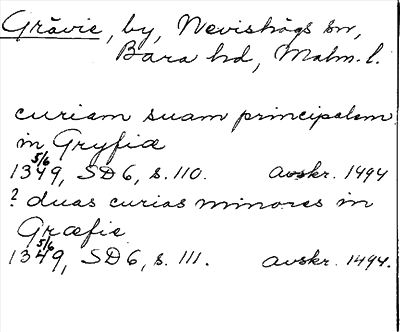 Grävie, by, Nevishögs sn,
Bara hd, Malm. l.
curiam suam principalem
in Gryfiæ
5/6
1349, SD 6, s. 110. Avskr. 1494
? duas curias minores in
Græfie
5/6
1349, SD 6, s. 111. Avskr. 1494.